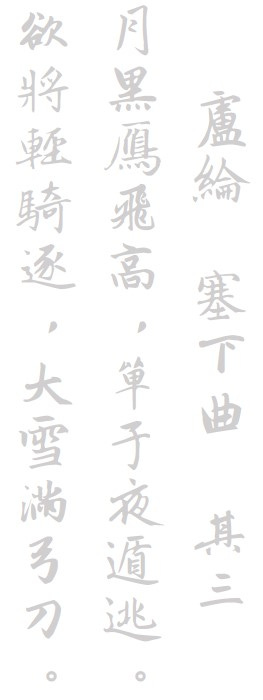 盧綸 塞下曲 其三
月黑鴈飛高，單于夜遁逃。
欲將輕騎逐，大雪滿弓刀。